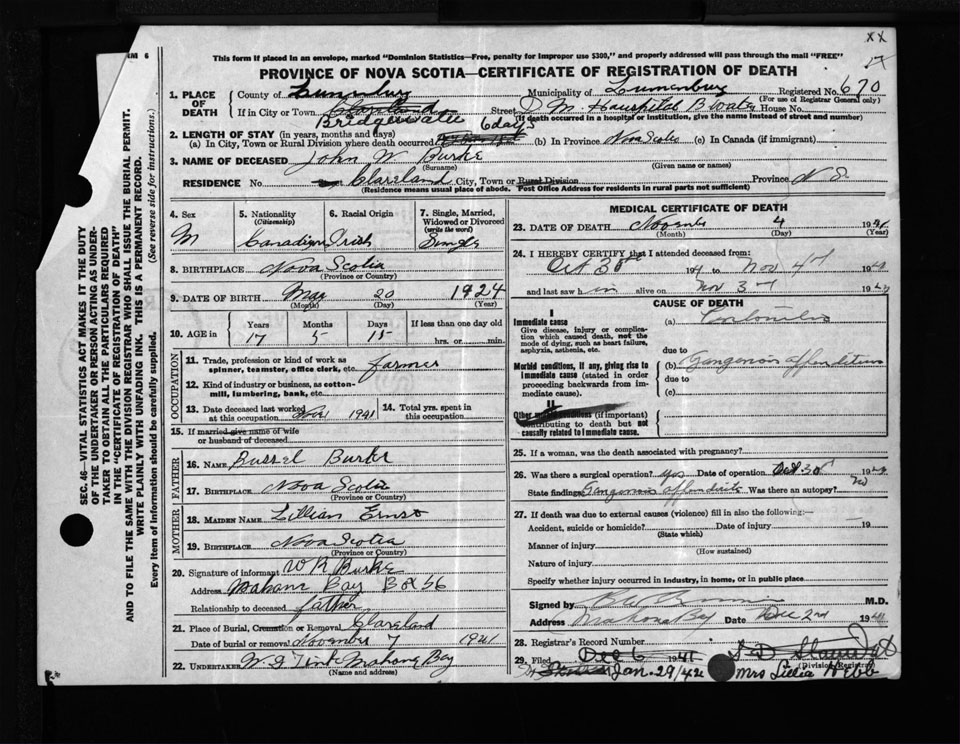 XX
RM 6
This form if placed in an envelope, marked "Dominion Statistics—Free, penalty for improper use $300," and properly addressed will pass through the mail "FREE"
PROVINCE OF NOVA SCOTIA—CERTIFICATE OF REGISTRATION OF DEATH
SEC. 46—VITAL STATISTICS ACT MAKES IT THE DUTY
OF THE UNDERTAKER OR PERSON ACTING AS UNDER-
TAKER TO OBTAIN ALL THE PARTICULARS REQUIRED
IN THE "CERTIFICATE OF REGISTRATION OF DEATH"
AND TO FILE THE SAME WITH THE DIVISION REGISTRAR WHO SHALL ISSUE THE BURIAL PERMIT.
WRITE PLAINLY WITH UNFADING INK. THIS IS A PERMANENT RECORD.
Every item of information should be carefully supplied. (See reverse side for instructions.)
1. PLACE OF DEATH
County of Lunenburg Municipality of Lunenburg Registered No. 670
(For use of Registrar General only)
If in City or Town Clareland Street D M Hospital B Water House No.
Bridgewater (If death occurred in a hospital or institution, give the name instead of street and number)
2. LENGTH OF STAY (in years, months and days) 6 days
(a) In City, Town or Rural Division where death occurred (b) In Province Nova Scotia (c) In Canada (if immigrant)
3. NAME OF DECEASED John W Burke
(Surname) (Given name or names)
RESIDENCE No. Clareland City, Town or Rural Division Province N S.
(Residence means usual place of abode. Post Office Address for residents in rural parts not sufficient)
4. Sex M
5. Nationality (Citizenship) Canadian
6. Racial Origin Irish
7. Single, Married, Widowed or Divorced (write the word) Single
8. BIRTHPLACE Nova Scotia
(Province or Country)
9. DATE OF BIRTH May 20 1924
(Month) (Day) (Year)
10. AGE in Years Months Days If less than one day old
17 5 15 hrs. or min.
OCCUPATION
11. Trade, profession or kind of work as spinner, teamster, office clerk, etc. farmer
12. Kind of industry or business, as cotton-mill, lumbering, bank, etc.
13. Date deceased last worked at this occupation 1941
14. Total yrs. spent in this occupation
15. If married give name of wife or husband of deceased
FATHER
16. NAME Russel Burke
17. BIRTHPLACE Nova Scotia
(Province or Country)
MOTHER
18. MAIDEN NAME Lillian Ernst
19. BIRTHPLACE Nova Scotia
(Province or Country)
20. Signature of informant W R Burke
Address Mahone Bay Box 56
Relationship to deceased father
21. Place of Burial, Cremation or Removal Clareland
Date of burial or removal November 7 1941
22. UNDERTAKER Mahone Bay
(Name and address)
MEDICAL CERTIFICATE OF DEATH
23. DATE OF DEATH 4 1941
(Month) (Day) (Year)
24. I HEREBY CERTIFY that I attended deceased from:
Oct 30 194 to Nov 4th 19
and last saw h im alive on Nov 3rd 19
CAUSE OF DEATH
I
Immediate cause
Give disease, injury or complication which caused death, not the mode of dying, such as heart failure, asphyxia, asthenia, etc.
(a)
due to
Morbid conditions, if any, giving rise to immediate cause (stated in order proceeding backwards from immediate cause).
(b) Gangrenous appendicitis
due to
(c)
II
Other conditions (if important) contributing to death but not causally related to immediate cause.
25. If a woman, was the death associated with pregnancy?
26. Was there a surgical operation? Yes Date of operation Oct 30 19
State findings Gangrenous appendicitis Was there an autopsy? No
27. If death was due to external causes (violence) fill in also the following:—
Accident, suicide or homicide? Date of injury 19
(State which)
Manner of injury
(How sustained)
Nature of injury
Specify whether injury occurred in industry, in home, or in public place
Signed by M.D.
Address Mahone Bay Date Dec 2nd 1941
28. Registrar's Record Number
29. Filed Dec 6 1941
(Division Registrar)
Jan. 29/42 Mrs Lillia Webb